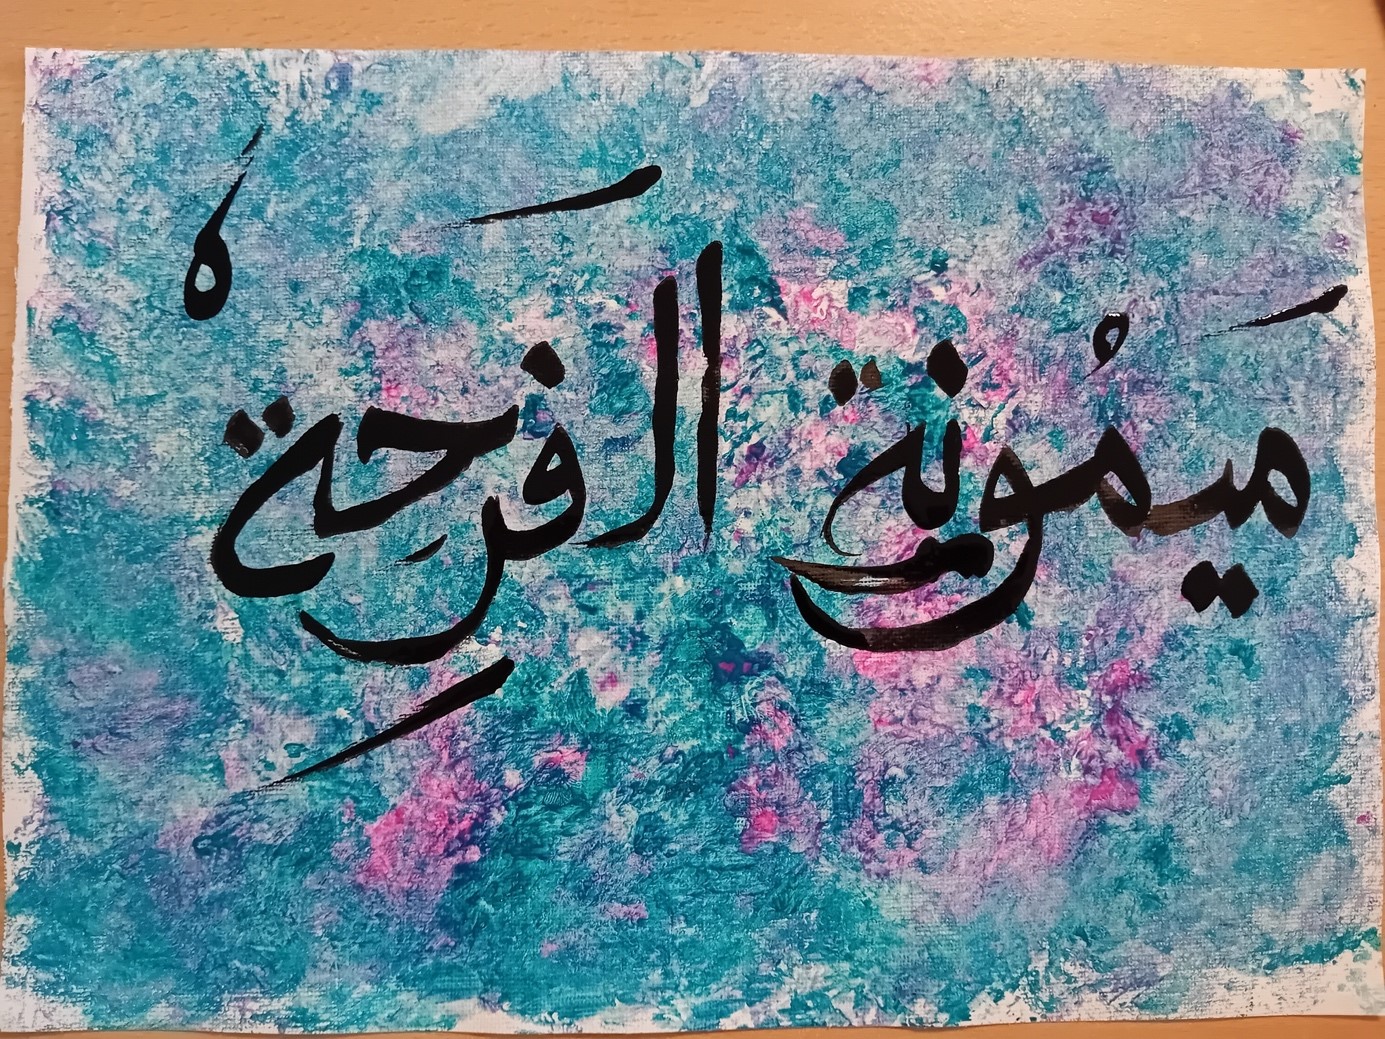 مَيمُونة الفَرِحة